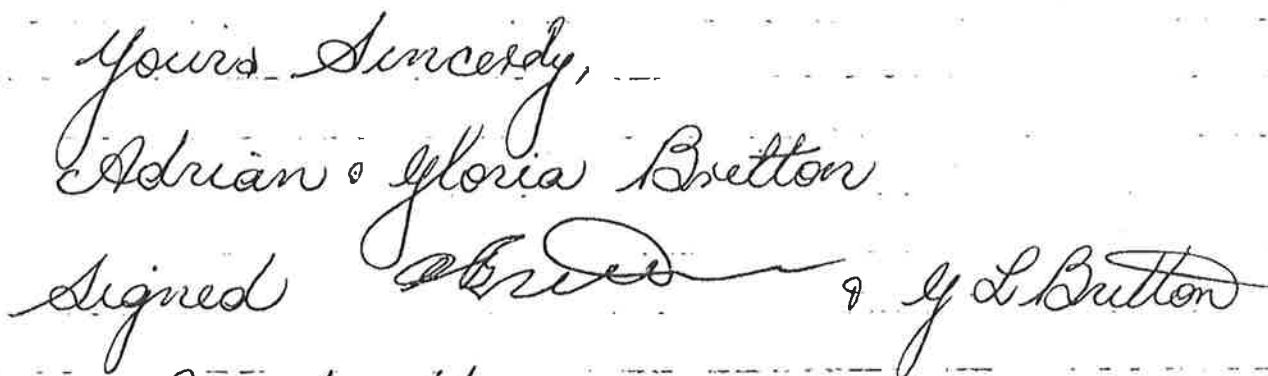 Yours Sincerely,
Adrian & Gloria Britton
Signed ABritton & G L Britton